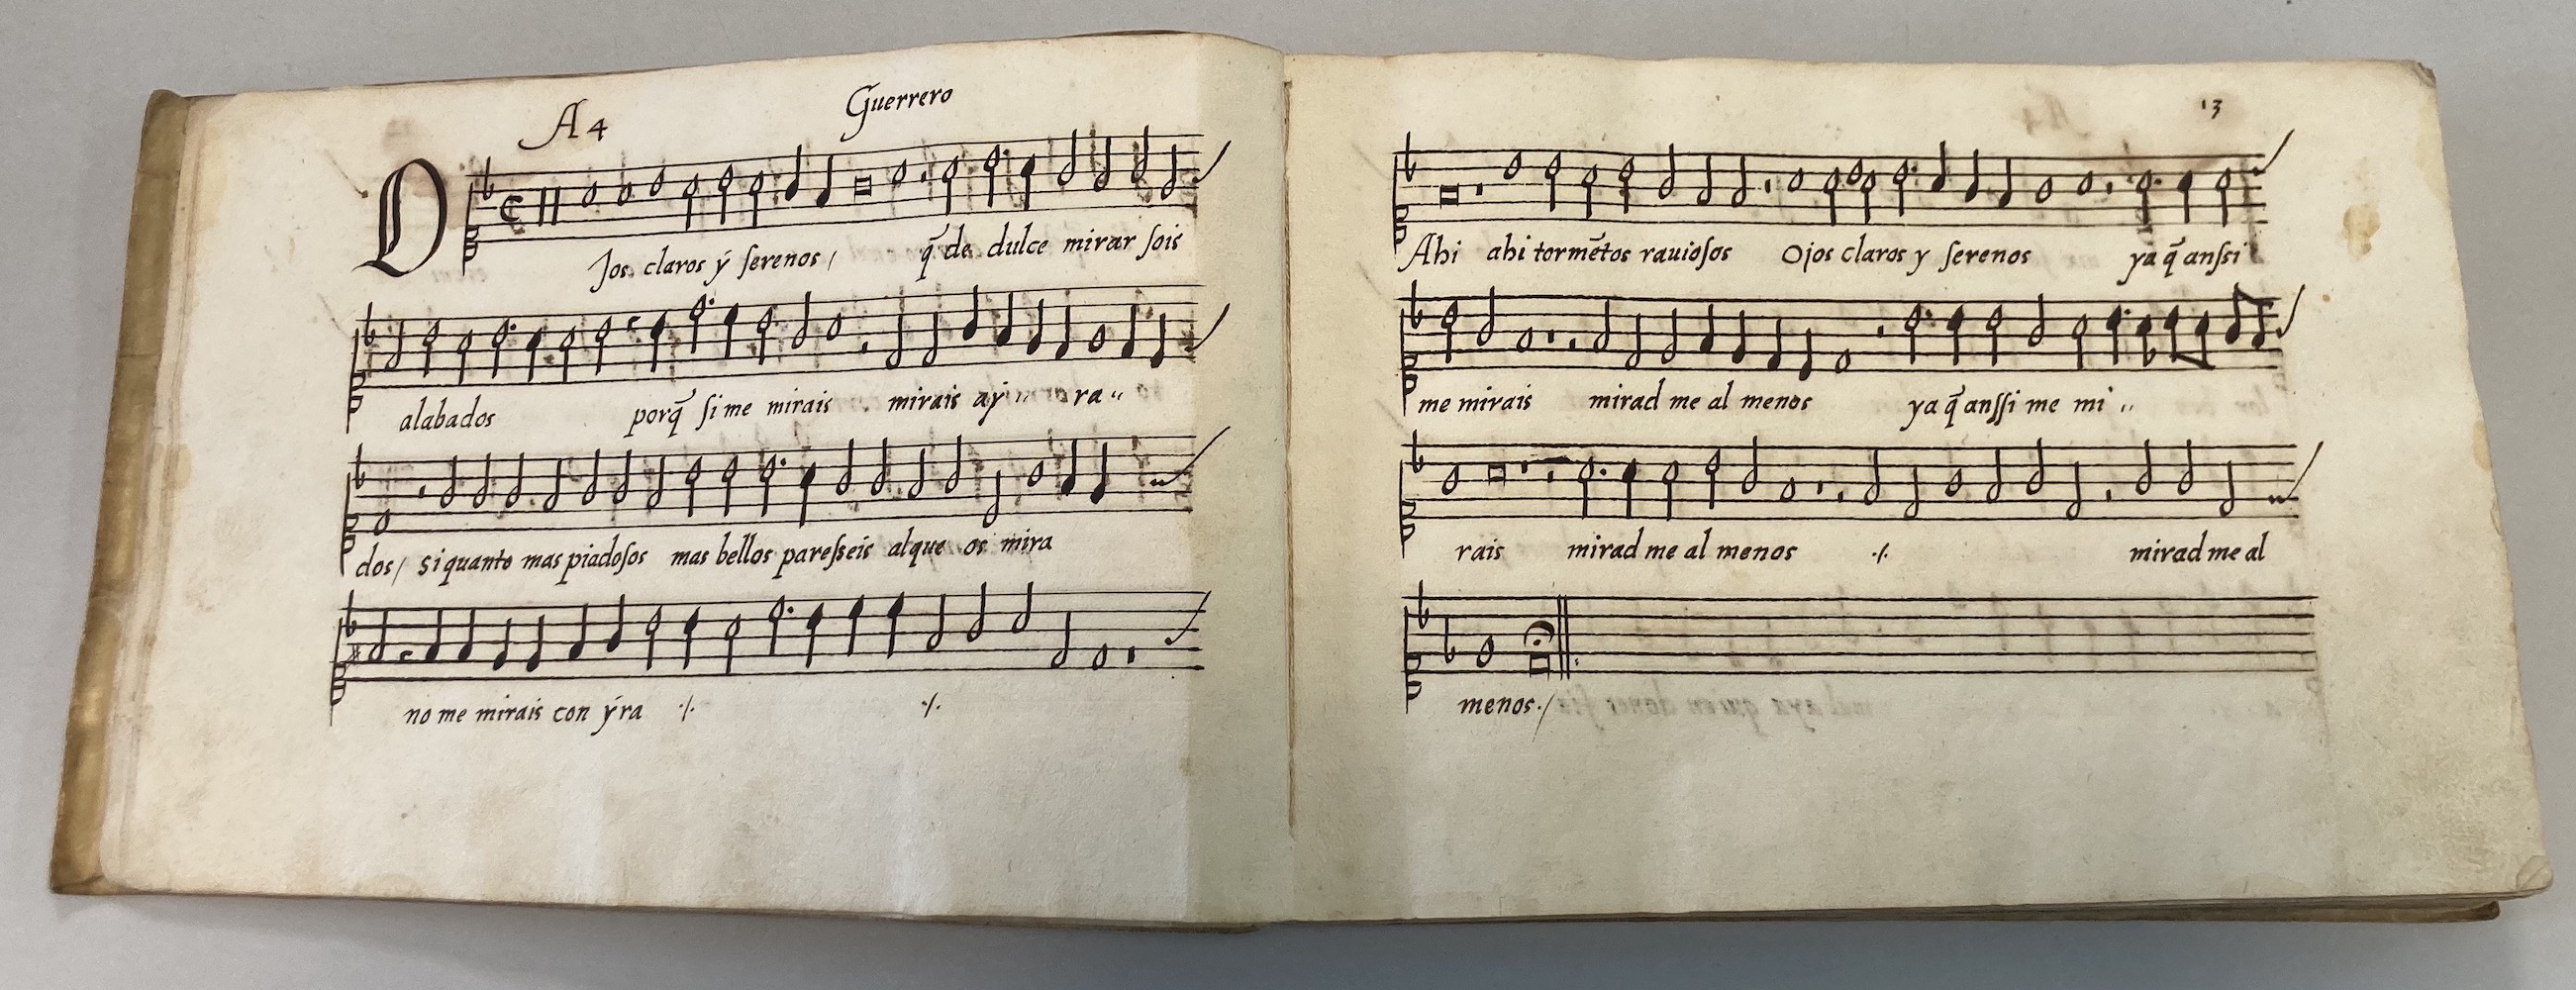 A 4 Guerrero
OJos claros ẏ ſerenos / q̃ de dulce mirar ſois
alabados porq̃ ſi me mirais mirais aẏ " ra "
dos / si quanto mas piadoſos mas bellos pareſseis alque os mira
no me mirais con ẏra ·/. ·/.
13
Ahi ahi tormẽtos rauioſos Ojos claros y ſerenos ya q̃ anſsi
me mirais mirad me al menos ya q̃ anſſi me mi "
rais mirad me al menos ·/. mirad me al
menos ·/